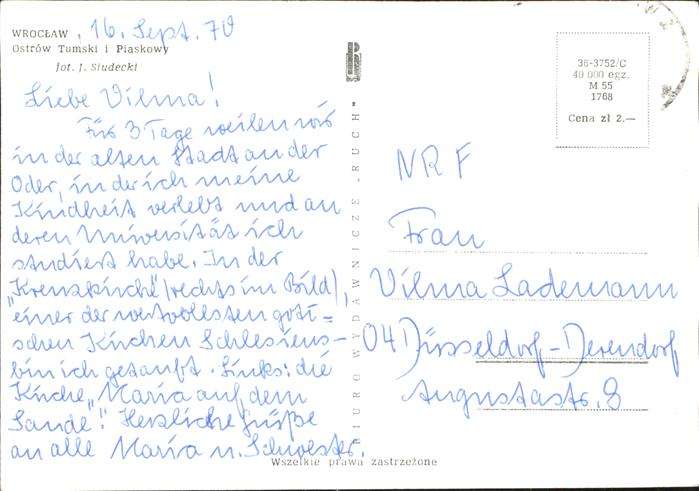 WROCŁAW, 16. Sept. 70
Ostrów Tumski i Piaskowy
fot. J. Siudecki
Liebe Vilma!
Für 3 Tage weilen wir
in der alten Stadt an der
Oder, in der ich meine
Kindheit verlebt und an
deren Universität ich
studiert habe. In der
„Kreuzkirche" (rechts im Bild),
einer der wertvollsten goti=
schen Kirchen Schlesiens-
bin ich getauft. Links: die
Kirche „Maria auf dem
Sande". Herzliche Grüße
an alle Maria u. Schwester.
BIURO WYDAWNICZE „RUCH"
36-3752/C
40 000 egz.
M 55
1768
Cena zł 2.—
NRF
Frau
Vilma Lademann
04 Düsseldorf-Derendorf
Augustastr. 8
Wszelkie prawa zastrzeżone